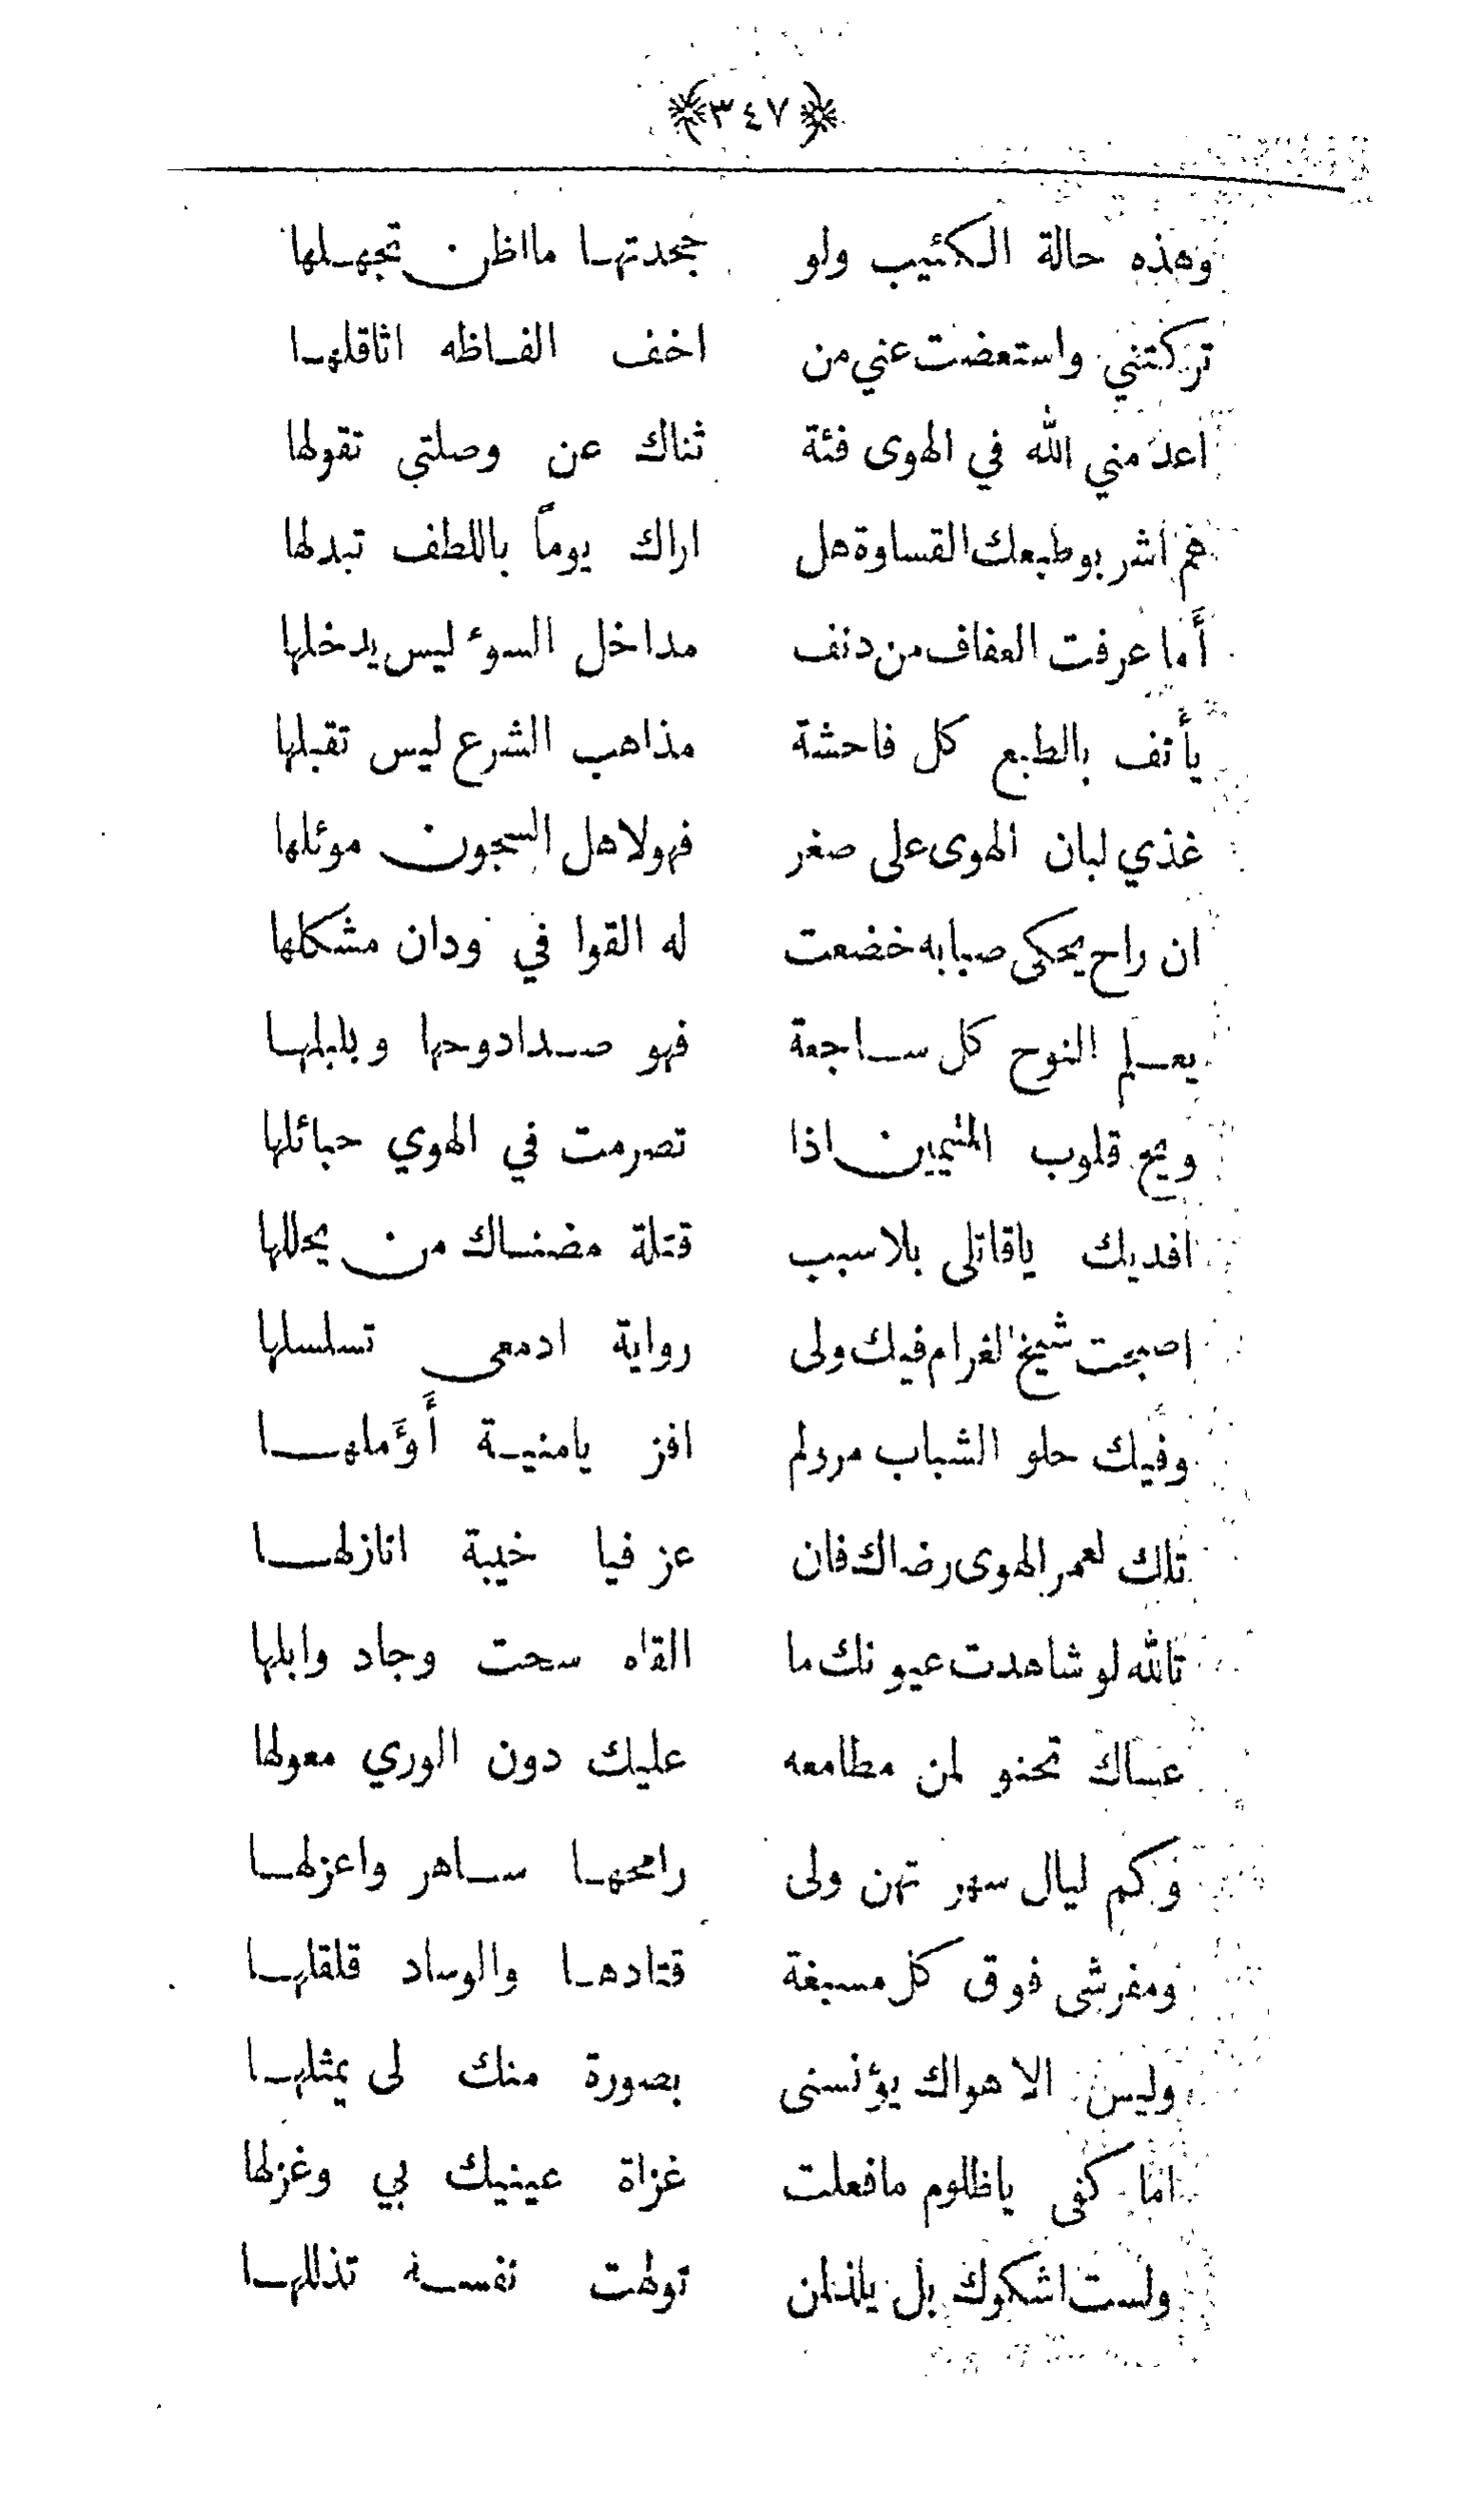 ﴿٣٤٧﴾
وهذه حالة الكئيب ولو جحدتها مااظن تجهلها
تركتني واستعضت عني من اخف الفاظه اثاقلها
اعدمني الله في الهوى فئة ثناك عن وصلتي تقولها
هم اشربوطبعك القساوة هل اراك يوماً باللطف تبدلها
أما عرفت العفاف من دنف مداخل السوء ليس يدخلها
يأنف بالطبع كل فاحشة مذاهب الشرع ليس تقبلها
غذي لبان الهوى على صغر فهولاهل السجون موئلها
ان راح يحكى صبابه خضعت له القوا في ودان مشكلها
يعلم النوح كل ساجعة فهو صدادوحها وبلبلها
ويح قلوب المتيمين اذا تصرمت في الهوي حبائلها
افديك ياقاتلى بلاسبب قتلة مضناك من يحللها
اصبحت شيخ الغرام فيك ولى رواية ادمعى تسلسلها
وفيك حلو الشباب مرولم افز يامنية أؤملها
تلك لعمر الهوى رضاك فان عز فيا خيبة انازلها
تالله لو شاهدت عيونك ما القاه سحت وجاد وابلها
عساك تحنو لمن مطامعه عليك دون الوري معولها
وكم ليال سهرتهن ولى رامحها ساهر واعزلها
ومفرشى فوق كل مسبغة قتادها والوساد قلقلها
وليس الا هواك يؤنسنى بصورة منك لى يمثلها
اما كفى ياظلوم مافعلت غزاة عينيك بي وغزلها
ولست اشكوك بل يلذلمن تولهت نفسه تذللها